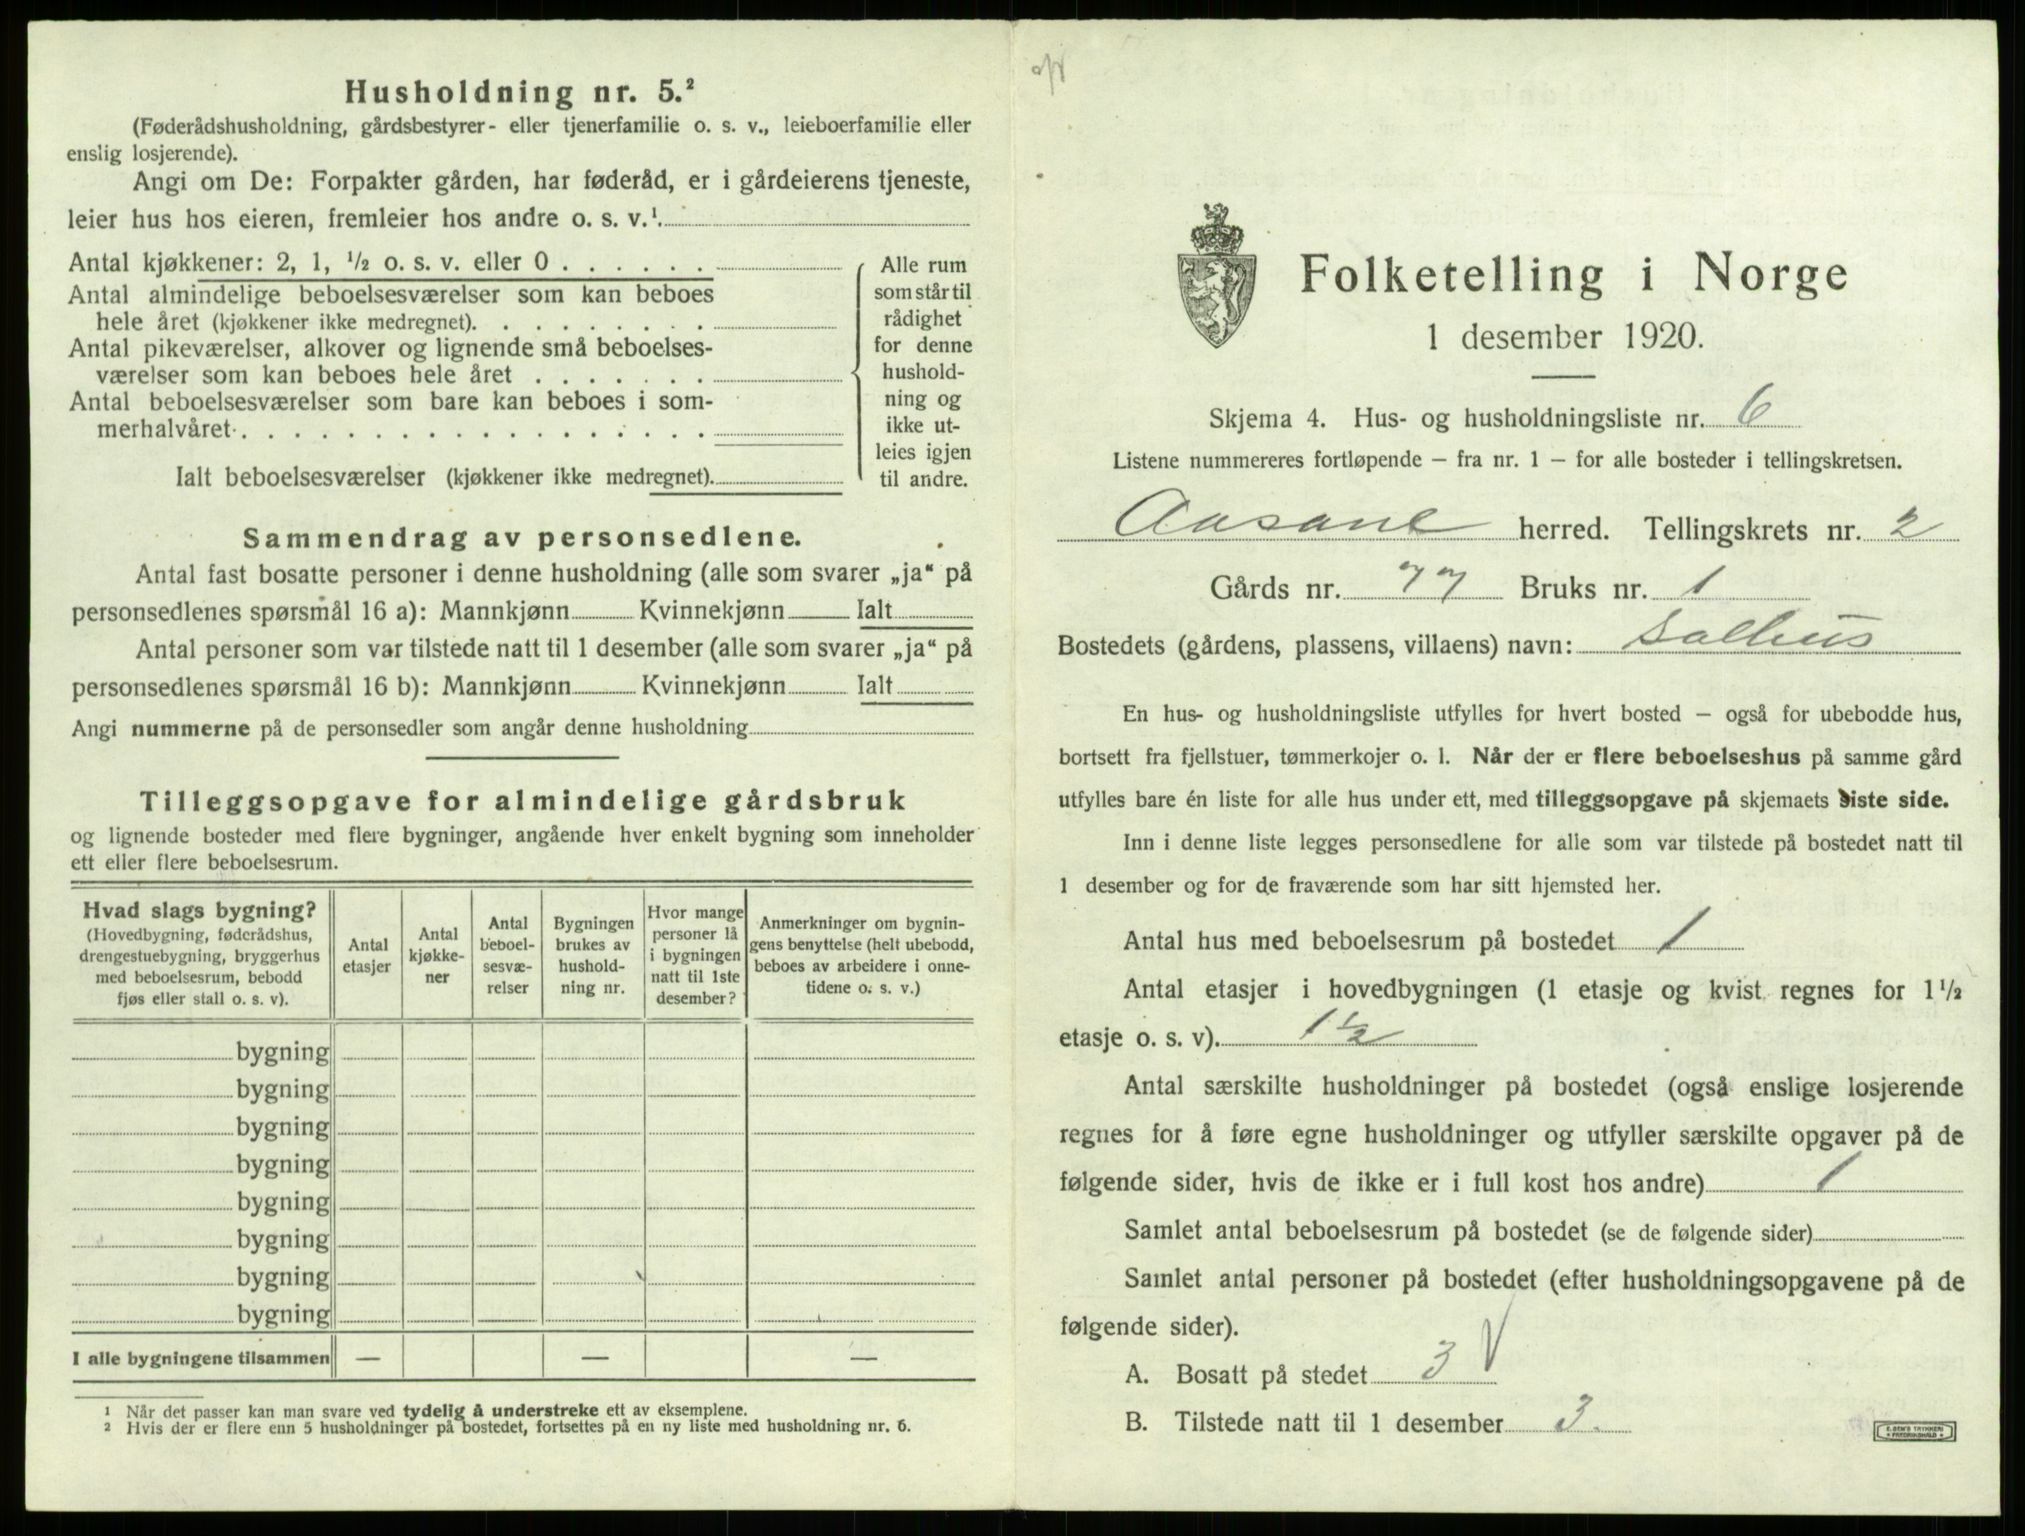 Husholdning nr. 5.²
(Føderådshusholdning, gårdsbestyrer- eller tjenerfamilie o. s. v., leieboerfamilie eller
enslig losjerende).
Angi om De: Forpakter gården, har føderåd, er i gårdeierens tjeneste,
leier hus hos eieren, fremleier hos andre o. s. v.¹.
Antal kjøkkener: 2, 1, ½ o. s. v. eller 0 . . . . . .
Antal almindelige beboelsesværelser som kan beboes
hele året (kjøkkener ikke medregnet). . . . . . . . .
Antal pikeværelser, alkover og lignende små beboelses-
værelser som kan beboes hele året . . . . . . .
Antal beboelsesværelser som bare kan beboes i som-
merhalvåret. . . . . . . . . . . . . . . . . .
Ialt beboelsesværelser (kjøkkener ikke medregnet).
Alle rum
som står til
rådighet
for denne
hushold-
ning og
ikke ut-
leies igjen
til andre.
Sammendrag av personsedlene.
Antal fast bosatte personer i denne husholdning (alle som svarer „ja“ på
personsedlenes spørsmål 16 a): Mannkjønn Kvinnekjønn Ialt
Antal personer som var tilstede natt til 1 desember (alle som svarer „ja“ på
personsedlenes spørsmål 16 b): Mannkjønn Kvinnekjønn Ialt
Angi nummerne på de personsedler som angår denne husholdning
Tilleggsopgave for almindelige gårdsbruk
og lignende bosteder med flere bygninger, angående hver enkelt bygning som inneholder
ett eller flere beboelsesrum.
Hvad slags bygning?
(Hovedbygning, føderådshus,
drengestuebygning, bryggerhus
med beboelsesrum, bebodd
fjøs eller stall o. s. v).
Antal
etasjer
Antal
kjøkke-
ner
Antal
beboel-
sesvæ-
relser
Bygningen
brukes av
hushold-
ning nr.
Hvor mange
personer lå
i bygningen
natt til 1ste
desember?
Anmerkninger om bygnin-
gens benyttelse (helt ubebodd,
beboes av arbeidere i onne-
tidene o. s. v.)
bygning
bygning
bygning
bygning
bygning
bygning
bygning
bygning
I alle bygningene tilsammen — — —
¹ Når det passer kan man svare ved tydelig å understreke ett av eksemplene.
² Hvis der er flere enn 5 husholdninger på bostedet, fortsettes på en ny liste med husholdning nr. 6.
Folketelling i Norge
1 desember 1920.
Skjema 4. Hus- og husholdningsliste nr. 6
Listene nummereres fortløpende – fra nr. 1 – for alle bosteder i tellingskretsen.
Aasane herred. Tellingskrets nr. 2
Gårds nr. 77 Bruks nr. 1
Bostedets (gårdens, plassens, villaens) navn: Salhus
En hus- og husholdningsliste utfylles før hvert bosted – også for ubebodde hus,
bortsett fra fjellstuer, tømmerkojer o. l. Når der er flere beboelseshus på samme gård
utfylles bare én liste for alle hus under ett, med tilleggsopgave på skjemaets siste side.
Inn i denne liste legges personsedlene for alle som var tilstede på bostedet natt til
1 desember og for de fraværende som har sitt hjemsted her.
Antal hus med beboelsesrum på bostedet 1
Antal etasjer i hovedbygningen (1 etasje og kvist regnes for 1½
etasje o. s. v). 1½
Antal særskilte husholdninger på bostedet (også enslige losjerende
regnes for å føre egne husholdninger og utfyller særskilte opgaver på de
følgende sider, hvis de ikke er i full kost hos andre) 1
Samlet antal beboelsesrum på bostedet (se de følgende sider)
Samlet antal personer på bostedet (efter husholdningsopgavene på de
følgende sider).
A. Bosatt på stedet 3 V
B. Tilstede natt til 1 desember 3.